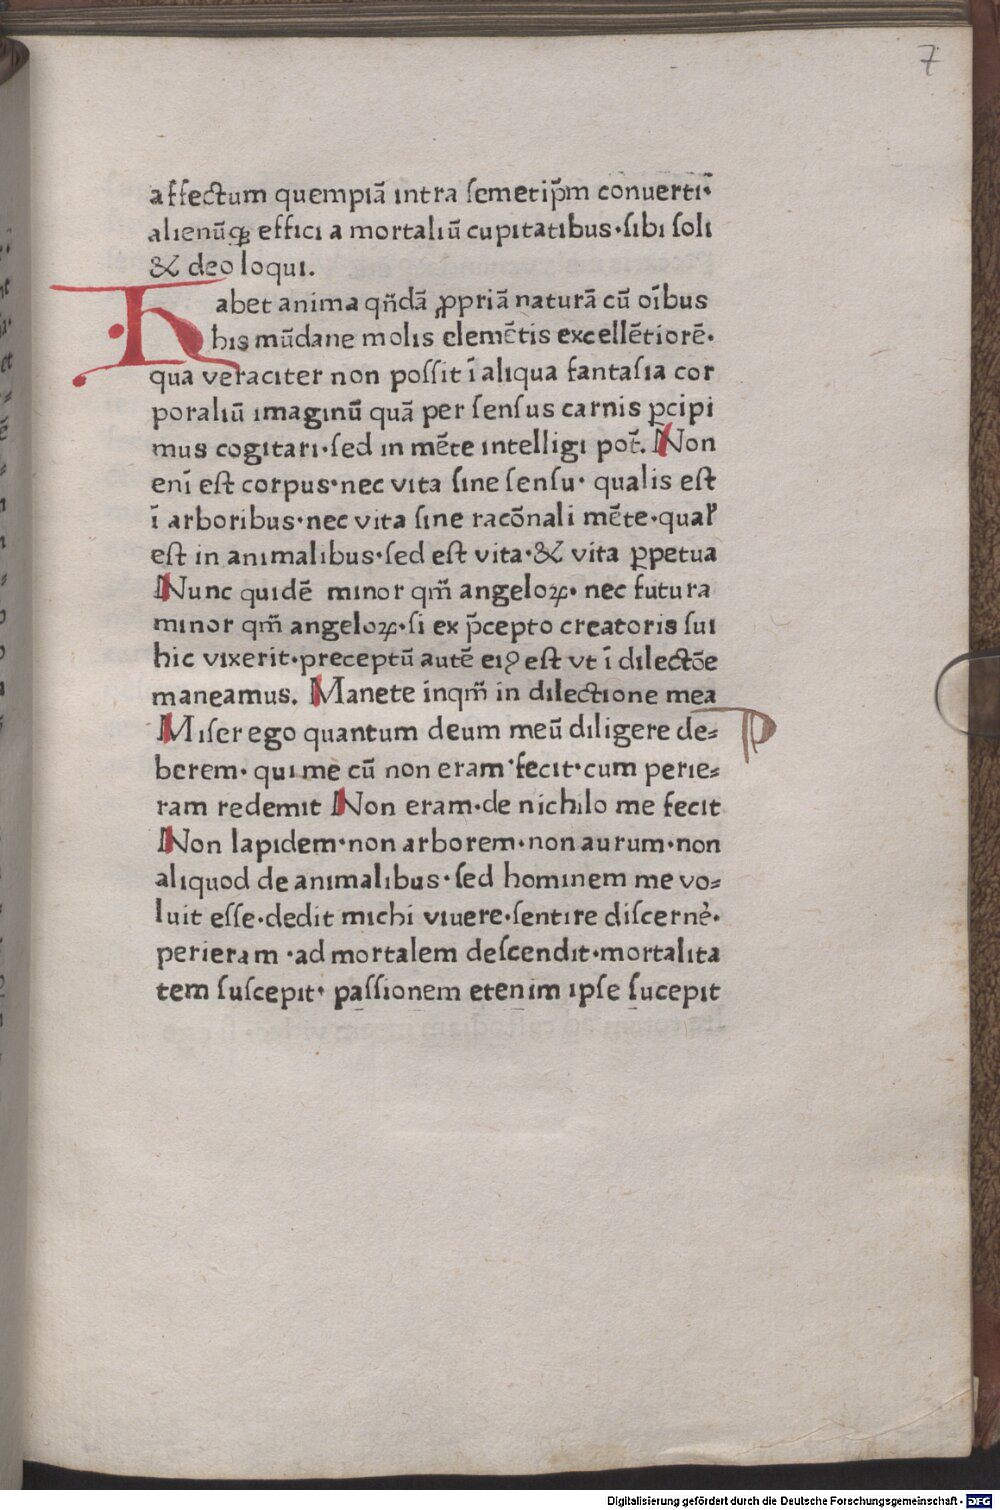 7
affectum quempiā intra ſemetip̄m conuerti·
alienūqꝫ effici a mortaliū cupitatibus·ſibi ſoli
& deo loqui.
Habet anima qn̄dā ꝓpriā naturā cū oībus
his mūdane molis elemētis excellētiorē·
qua veraciter non poſſit ī aliqua fantaſia cor
poraliū imaginū quā per ſenſus carnis p̄cipi
mus cogitari·ſed in mēte intelligi pot̄. Non
enī eſt corpus·nec vita ſine ſenſu· qualis eſt
ī arboribus·nec vita ſine racōnali mēte·qual̕
eſt in animalibus·ſed eſt vita·& vita ꝑpetua
Nunc quidē minor qm̄ angeloꝝ· nec futura
minor qm̄ angeloꝝ·ſi ex p̄cepto creatoris ſui
hic vixerit·preceptū autē eiꝰ eſt vt ī dilectōe
maneamus. Manete inqm̄ in dilectione mea
Miſer ego quantum deum meū diligere de⸗
berem· qui me cū non eram·fecit·cum perie⸗
ram redemit Non eram·de nichilo me fecit
Non lapidem·non arborem·non aurum·non
aliquod de animalibus·ſed hominem me vo⸗
luit eſſe·dedit michi viuere·ſentire diſcerne̕·
perieram ·ad mortalem deſcendit·mortalita
tem ſuſcepit· paſſionem etenim ipſe ſucepit
Digitalisierung gefördert durch die Deutsche Forschungsgemeinschaft - DFG